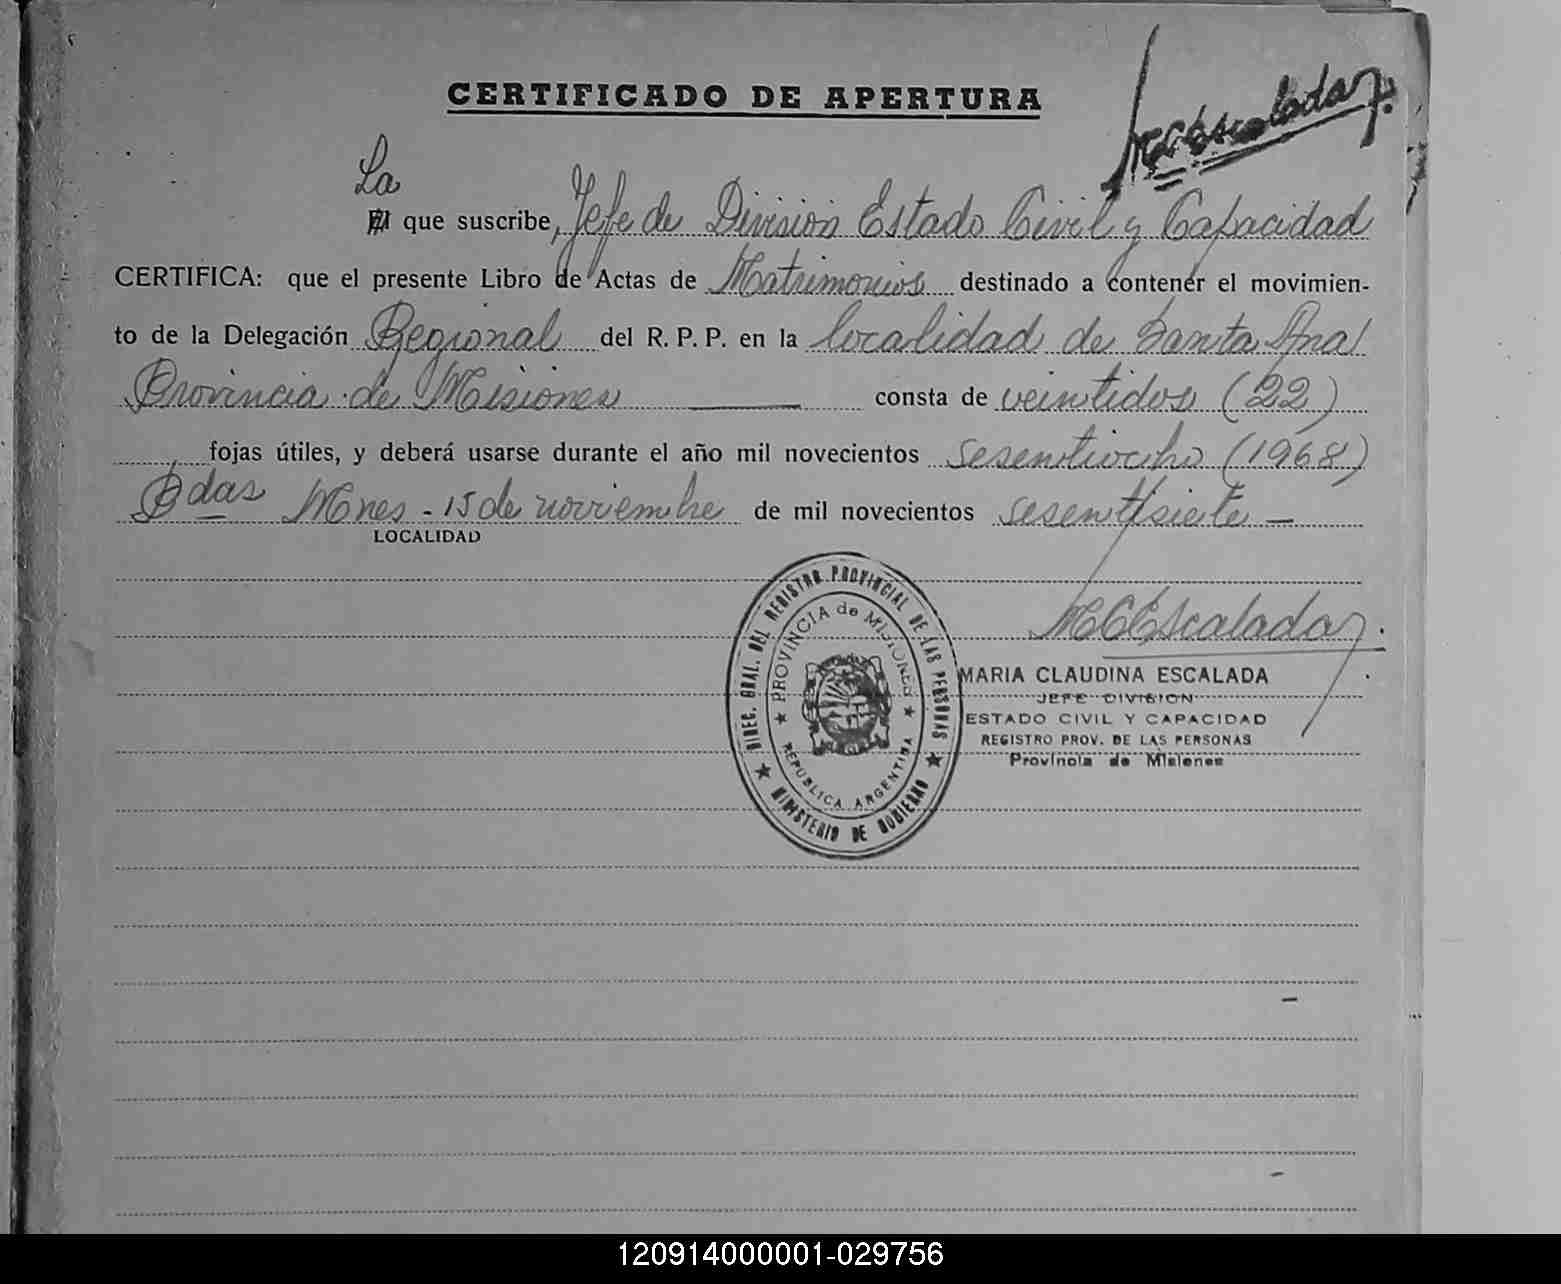 CERTIFICADO DE APERTURA
MCEscalada
La
El que suscribe, Jefe de División Estado Civil y Capacidad
CERTIFICA: que el presente Libro de Actas de Matrimonios destinado a contener el movimien-
to de la Delegación Regional del R. P. P. en la localidad de Santa Ana
Provincia de Misiones consta de veintidos (22)
fojas útiles, y deberá usarse durante el año mil novecientos sesentiocho (1968)
Pdas Mnes - 15 de noviembre de mil novecientos sesentisiete -
LOCALIDAD
MCEscalada
DIREC. GRAL. DEL REGISTRO PROVINCIAL DE LAS PERSONAS
PROVINCIA de MISIONES
REPUBLICA ARGENTINA
MINISTERIO DE GOBIERNO
MARIA CLAUDINA ESCALADA
JEFE DIVISION
ESTADO CIVIL Y CAPACIDAD
REGISTRO PROV. DE LAS PERSONAS
Provincia de Misiones
120914000001-029756